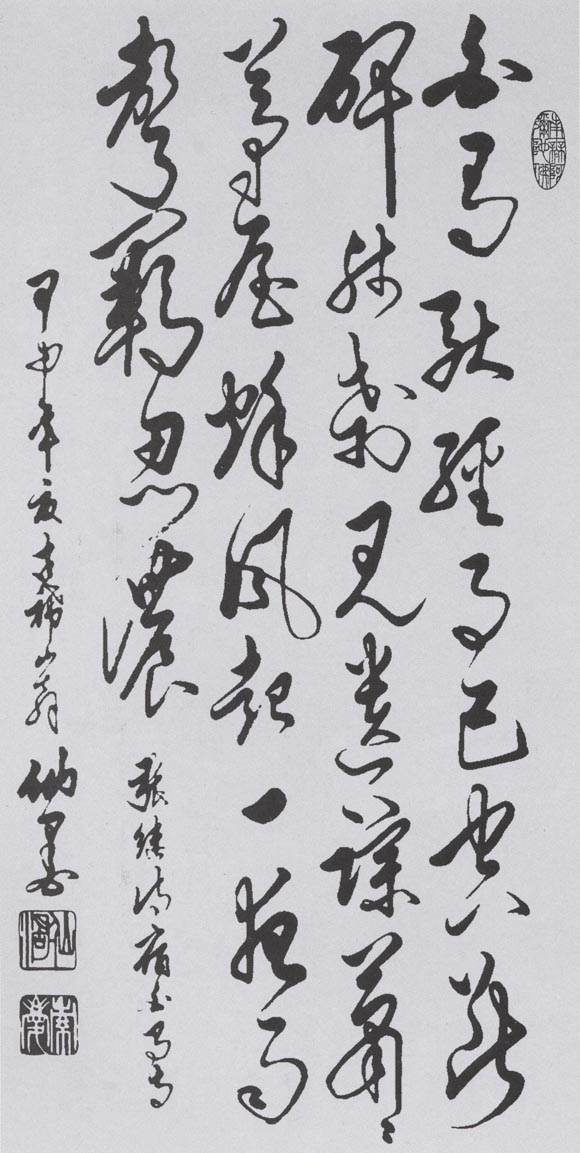 白馬馱經事已空斷
碑殘刹見遺蹤蕭々
茅屋秋風起一夜雨
聲羈思濃
張繼詩宿白馬寺
甲申年夏山翁